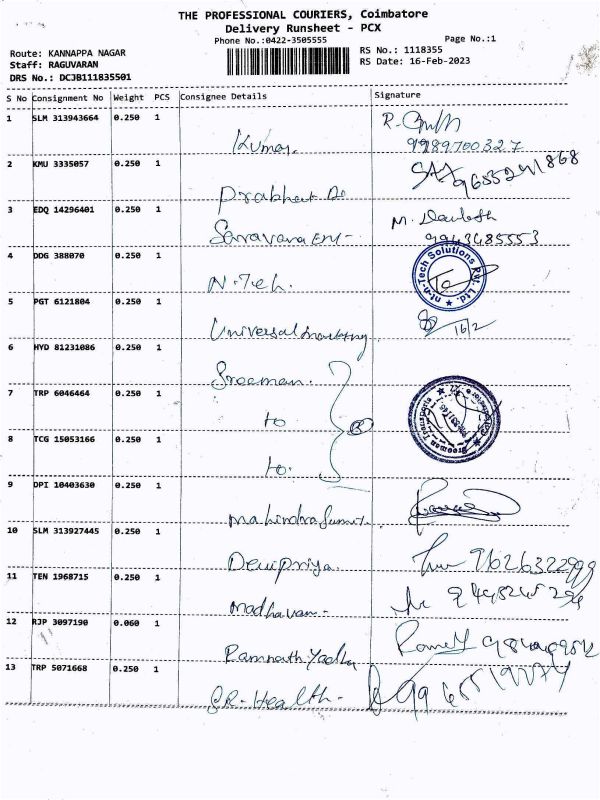 THE PROFESSIONAL COURIERS, Coimbatore
Delivery Runsheet - PCX
Phone No.:0422-3505555
Page No.:1
Route: KANNAPPA NAGAR
RS No.: 1118355
Staff: RAGUVARAN
RS Date: 16-Feb-2023
DRS No.: DCJB111835501
S No Consignment No Weight PCS Consignee Details Signature
1 SLM 313943664 0.250 1
Kumar.
9989700327
2 KMU 3335057 0.250 1
9655241868
Prabhat
3 EDQ 14296401 0.250 1
Saravana Ent-
M.
9943485553
4 DDG 388070 0.250 1
N.Teh.
nt-n-Tech Solutions Pvt. Ltd.
5 PGT 6121804 0.250 1
Universal marketing
16/2
6 HYD 81231086 0.250 1
Sreeman.
7 TRP 6046464 0.250 1
to
8 TCG 15053166 0.250 1
to.
9 DPI 10403630 0.250 1
mahindra
10 SLM 313927445 0.250 1
Devipriya.
9626322999
11 TEN 1968715 0.250 1
madhavan-
12 RJP 3097190 0.060 1
Ramnath
13 TRP 5071668 0.250 1
S.R-Health-